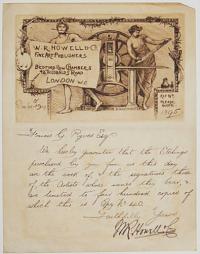 W. R. HOWELL & Co
FINE ART PUBLISHERS
BEDFORD ROW CHAMBERS
42 THEOBALDS ROAD
LONDON W.C.
Francis G. Esq
We hereby guarantee that the Etchings
purchased by you from us this day
are the work of & the signatures those
of the Artists whose names they bear, &
are limited to four hundred copies of
which this is No
Faithfully Yours
W R Howell & Co